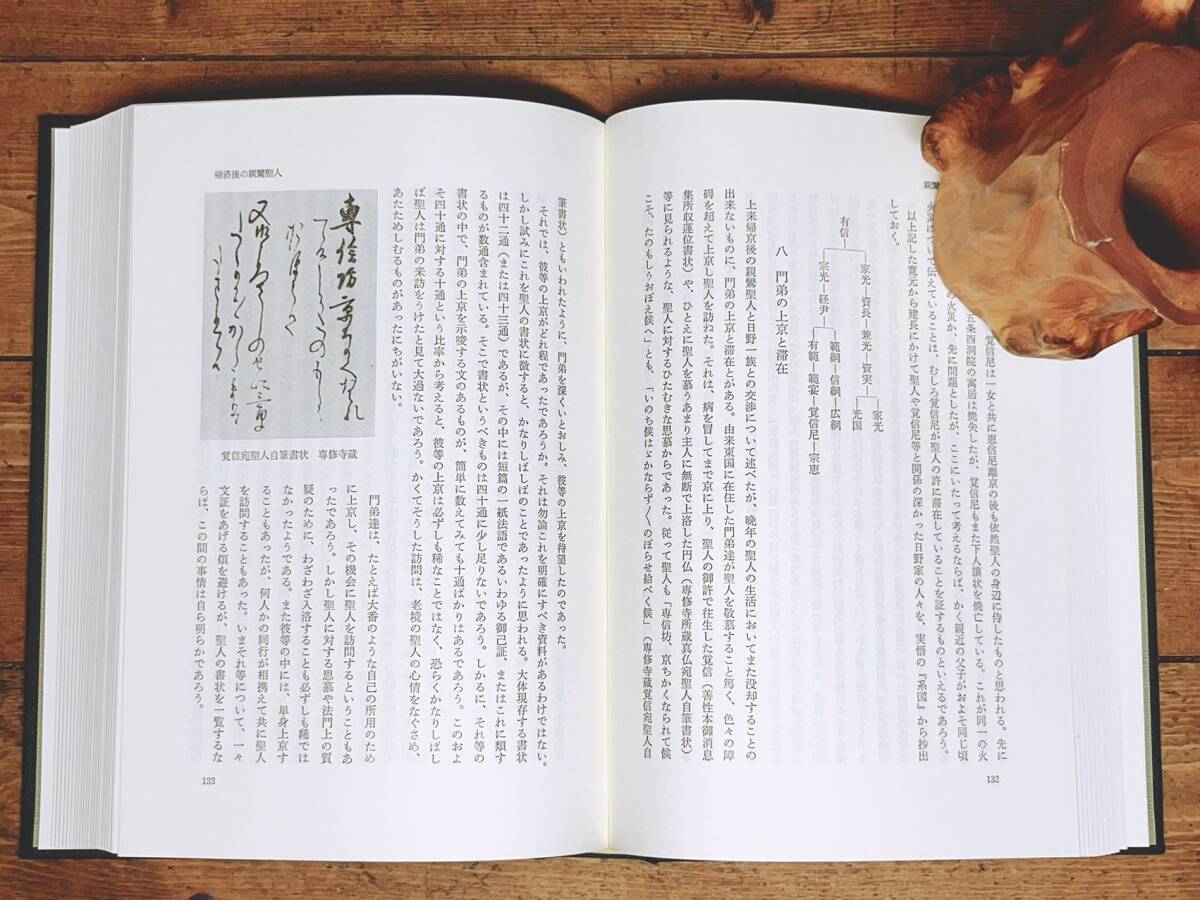 親鸞
覚信尼は一女と共に恵信尼離京の後も依然聖人の身辺に侍したものと思われる。先に
五条西洞院の寓居は焼失したが、覚信尼もまた下人譲状を焼亡している。これが同一の火
の火災か、先に問題としたが、ここにいたって考えるならば、かく親近の父子がおよそ同じ頃
火災について伝えていることは、むしろ覚信尼が聖人の許に滞在していることを証するものといえるであろう。
以上記した寛元から建長にかけて聖人や覚信尼等と関係の深かった日野家の人々を、実悟の『系図』から抄出
しておく。
有信
家光―資長―兼光―資実―家光
光国
宗光―経尹―範綱―信綱―広綱
有範―範宴―覚信尼―宗恵
八　門弟の上京と滞在
上来帰京後の親鸞聖人と日野一族との交渉について述べたが、晩年の聖人の生活においてまた没却することの
出来ないものに、門弟の上京と滞在とがある。由来東国に在住した門弟達が聖人を敬慕すること篤く、色々の障
碍を超えて上京し聖人を訪ねた。それは、病を冒してまで京に上り、聖人の御許で往生した覚信（善性本御消息
集所収蓮位書状）や、ひとえに聖人を慕うあまり主人に無断で上洛した円仏（専修寺所蔵真仏宛聖人自筆書状）
等に見られるような、聖人に対するひたむきな思慕からであった。従って聖人も「専信坊、京ちかくなられて候
こそ、たのもしうおぼえ候へ」とも、「いのち候はゞかならず〳〵のぼらせ給べく候」（専修寺蔵覚信宛聖人自
132
帰洛後の親鸞聖人
筆書状）ともいわれたように、門弟を深くいとおしみ、彼等の上京を待望したのであった。
それでは、彼等の上京がどれ程であったであろうか。それは勿論これを明確にすべき資料があるわけではない。
しかし試みにこれを聖人の書状に徴すると、かなりしばしばのことであったように思われる。大体現存する書状
は四十二通（または四十三通）であるが、その中には短篇の一紙法語であるいわゆる御己証、またはこれに類す
るものが数通含まれている。そこで書状というべきものは四十通に少し足りないであろう。しかるに、それ等の
書状の中で、門弟の上京を示唆する文のあるものが、簡単に数えてみても十通ばかりはあるであろう。このおよ
そ四十通に対する十通という比率から考えると、彼等の上京は必ずしも稀なことではなく、恐らくかなりしばし
ば聖人は門弟の来訪をうけたと見て大過ないであろう。かくてそうした訪問は、老境の聖人の心情をなぐさめ、
あたためしむるものがあったにちがいない。
覚信宛聖人自筆書状　専修寺蔵
門弟達は、たとえば大番のような自己の所用のため
に上京し、その機会に聖人を訪問するということもあ
ったであろう。しかし聖人に対する思慕や法門上の質
疑のために、わざわざ入洛することも必ずしも稀では
なかったようである。また彼等の中には、単身上京す
ることもあったが、何人かの同行が相携えて共に聖人
を訪問することもあった。いまそれ等について、一々
文証をあげる煩を避けるが、聖人の書状を一覧するな
らば、この間の事情は自ら明らかであろう。
133